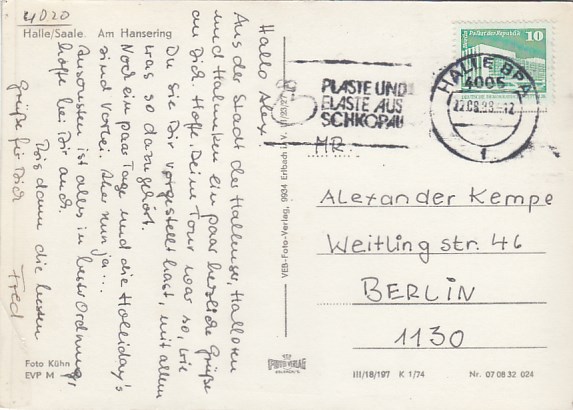 4020
Halle/Saale Am Hansering
Hallo Alex
Aus der Stadt der Hallenser, Halloren
und Halunken ein paar herzliche Grüße
an Dich. Hoffe, Deine Tour war so, wie
Du sie Dir vorgestellt hast, mit allem
was so dazugehört.
Noch ein paar Tage und die Holliday's
sind vorbei. Aber nun ja...
Ansonsten ist alles in bester Ordnung,
hoffe bei Dir auch.
Bis dann die besten
Grüße für Dich
Fred
Foto Kühn
EVP M
VEB-Foto-Verlag, 9934 Erlbach
PLASTE UND
ELASTE AUS
SCHKOPAU
Palast der Republik
10
DEUTSCHE DEMOKRATISCHE
HALLE BPA
4005
22.08.83-12
1
HR
Alexander Kempe
Weitling str. 46
BERLIN
1130
III/18/197 K 1/74
Nr. 07 08 32 024